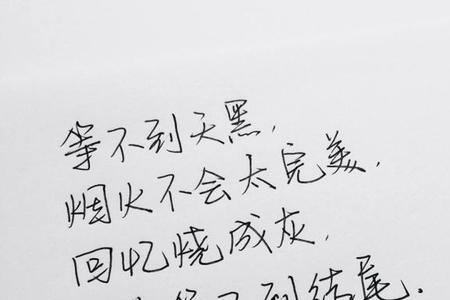 等不到天黑，
烟火不会太完美，
回忆烧成灰，
等不到结尾．